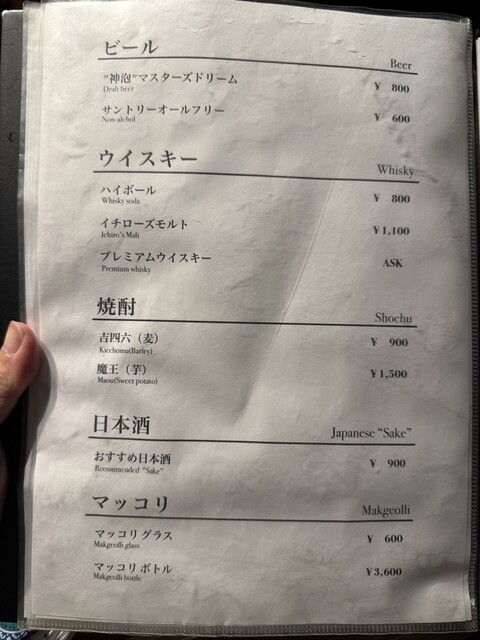 ビール Beer
"神泡"マスターズドリーム ¥ 800
Draft beer
サントリーオールフリー ¥ 600
Non-alchol
ウイスキー Whisky
ハイボール ¥ 800
Whisky soda
イチローズモルト ¥1,100
Ichiro's Malt
プレミアムウイスキー ASK
Premium whisky
焼酎 Shochu
吉四六（麦） ¥ 900
Kicchomu(Barley)
魔王（芋） ¥1,500
Maou(Sweet potato)
日本酒 Japanese "Sake"
おすすめ日本酒 ¥ 900
Recommended "Sake"
マッコリ Makgeolli
マッコリ グラス ¥ 600
Makgeolli glass
マッコリ ボトル ¥3,600
Makgeolli bottle